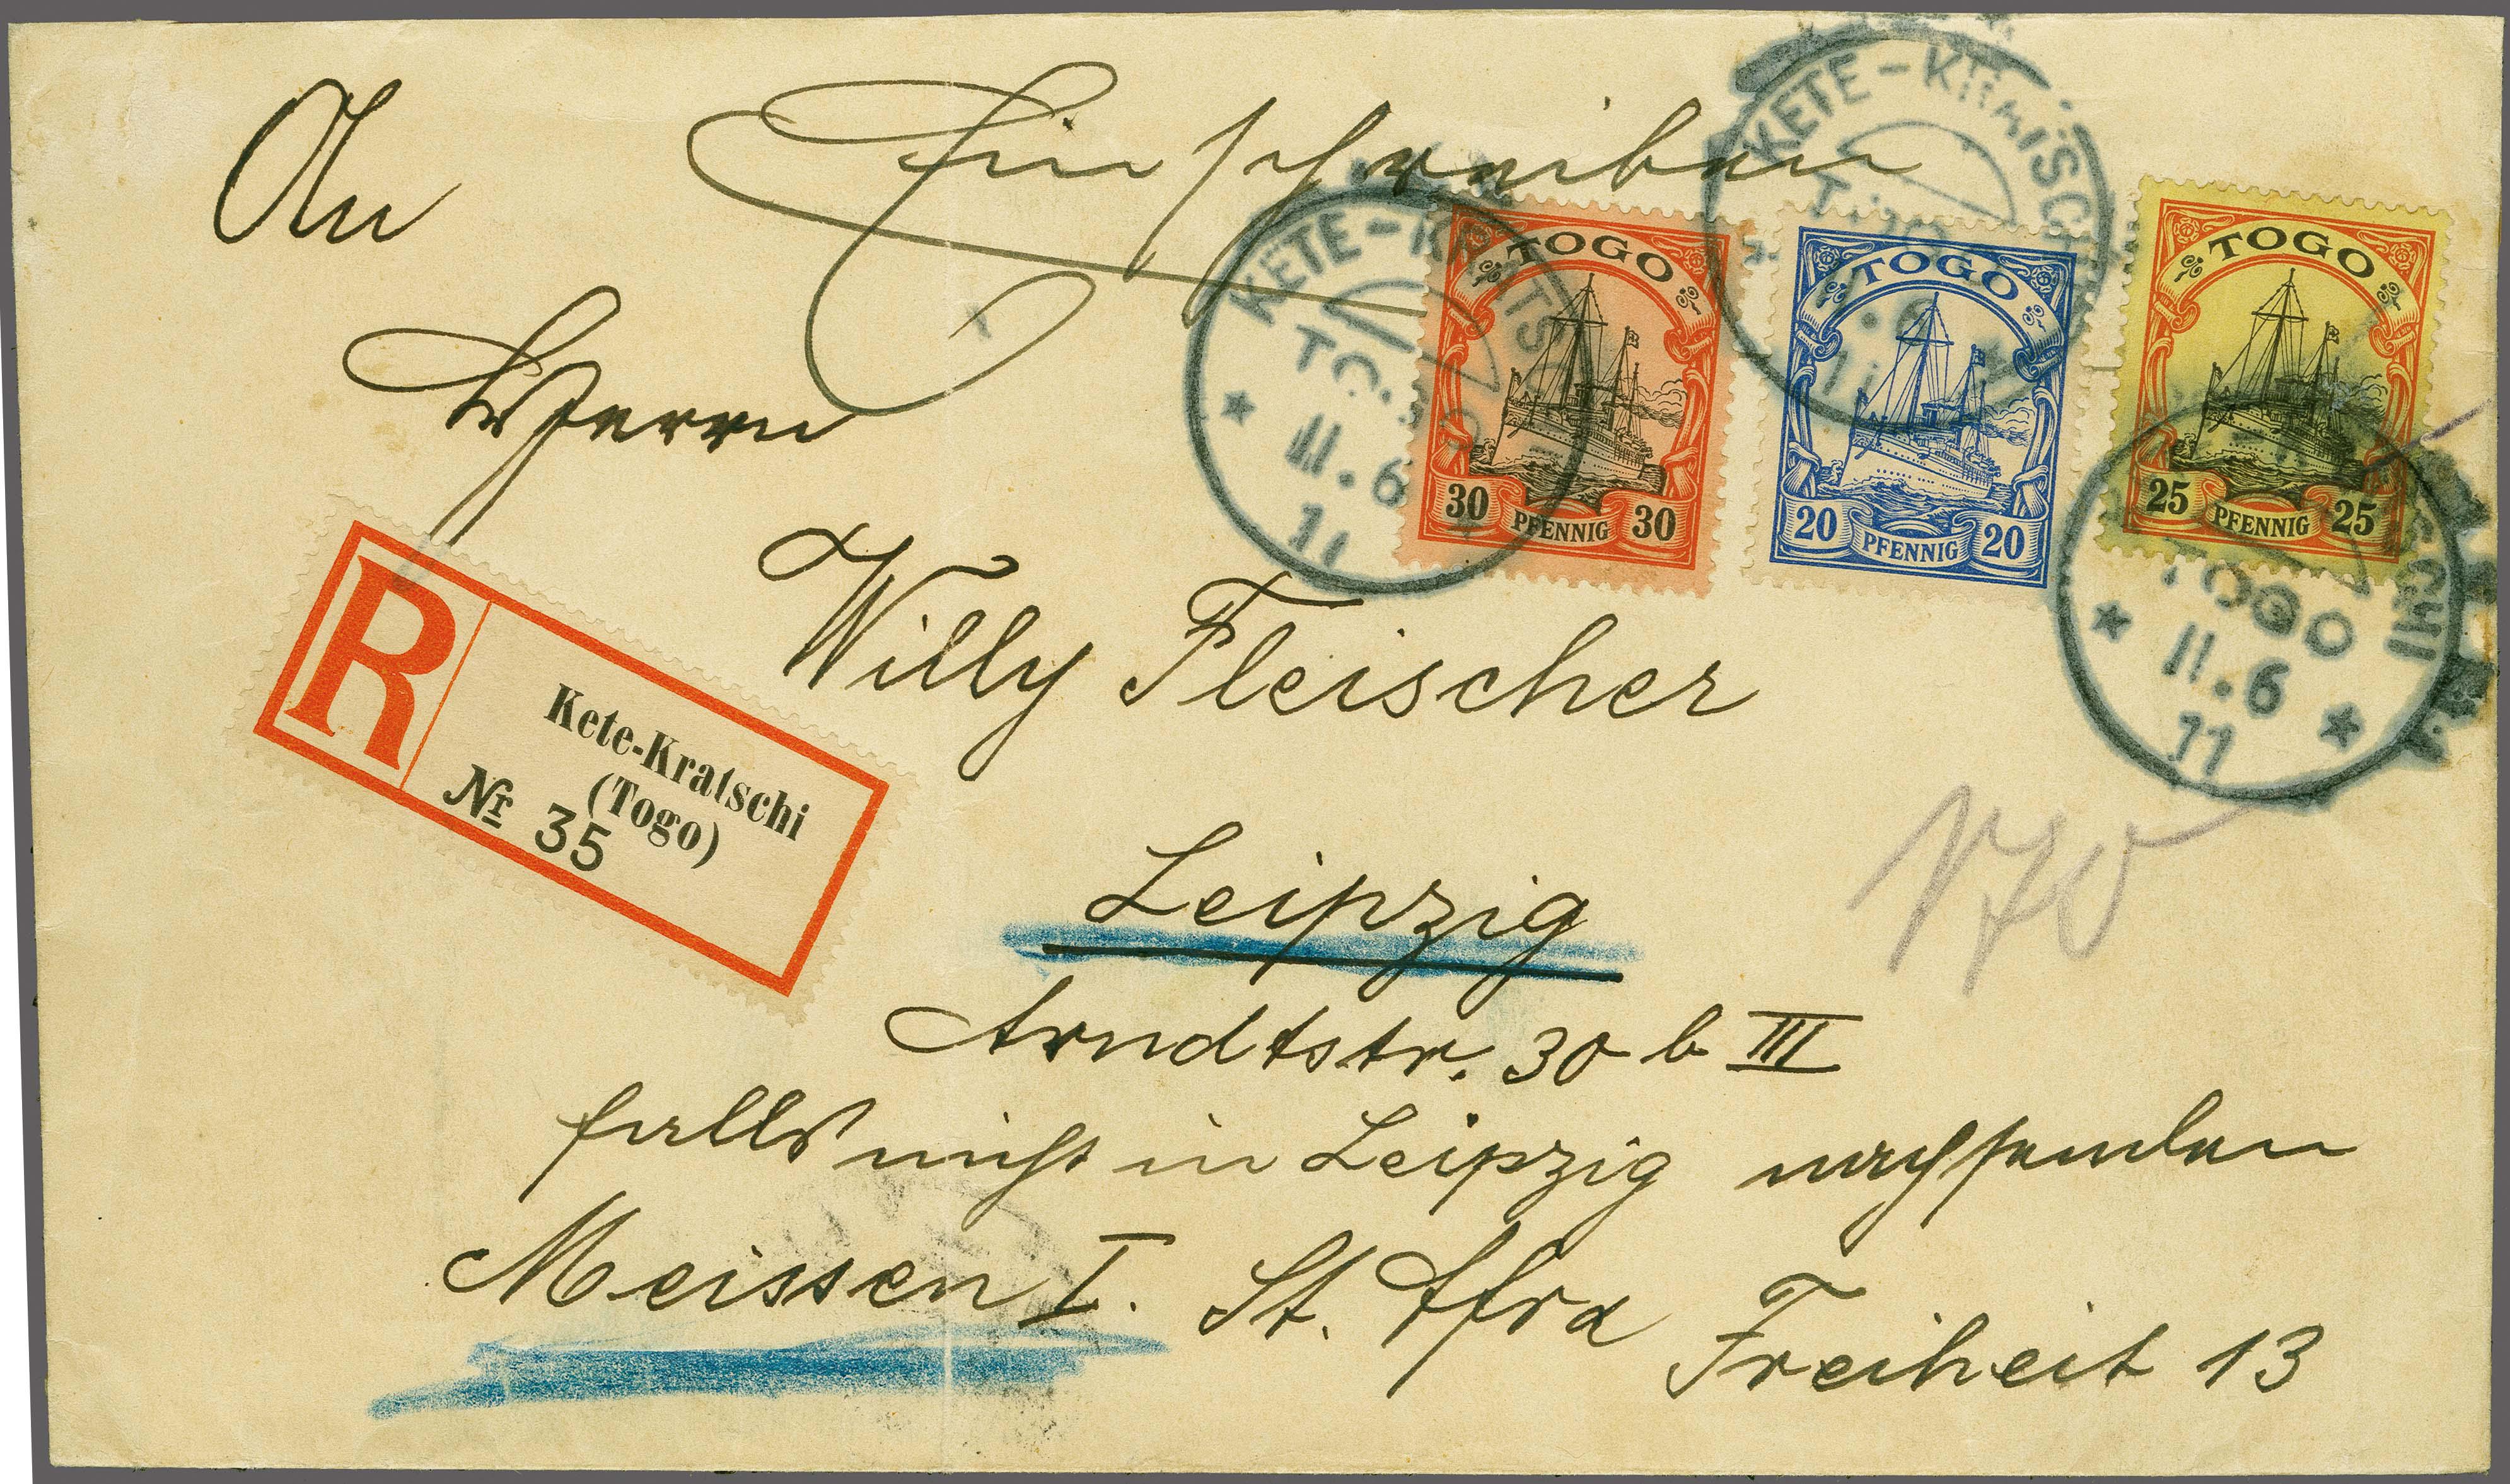 An Einschreiben
Herrn
Willy Fleischer
Leipzig
Arndtstr. 30 b III
falls nicht in Leipzig nachsenden
Meissen I. St. Afra Freiheit 13
R
Kete-Kratschi
(Togo)
Nr 35
TOGO
30 PFENNIG 30
TOGO
20 PFENNIG 20
TOGO
25 PFENNIG 25
KETE-KRATSCHI
TOGO
11.6
11
KETE-KRATSCHI
TOGO
11
TOGO
11.6
11